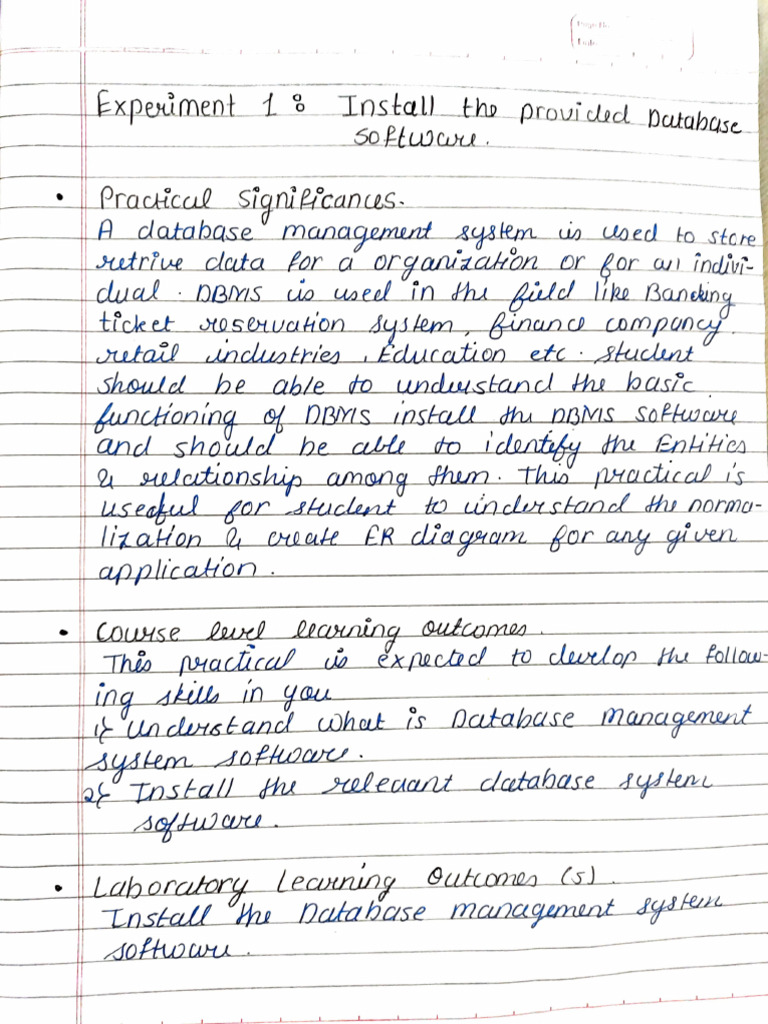 Page No.
Date.
Experiment 1 : Install the provided Database
software.
• Practical Significances.
A database management system is used to store
retrive data for a organization or for an indivi-
dual. DBMS is used in the field like Bancking
ticket reservation system, finance company.
retail industries, Education etc. Student
should be able to understand the basic
functioning of DBMS install the DBMS software
and should be able to identify the Entities
& relationship among them. This practical is
useful for student to understand the norma-
lization & create ER diagram for any given
application.
• Course level learning outcomes.
This practical is expected to develop the follow-
ing skills in you
1} Understand what is Database Management
system software.
2} Install the relevant database system
software.
• Laboratory Learning Outcomes (s).
Install the Database management system
software.